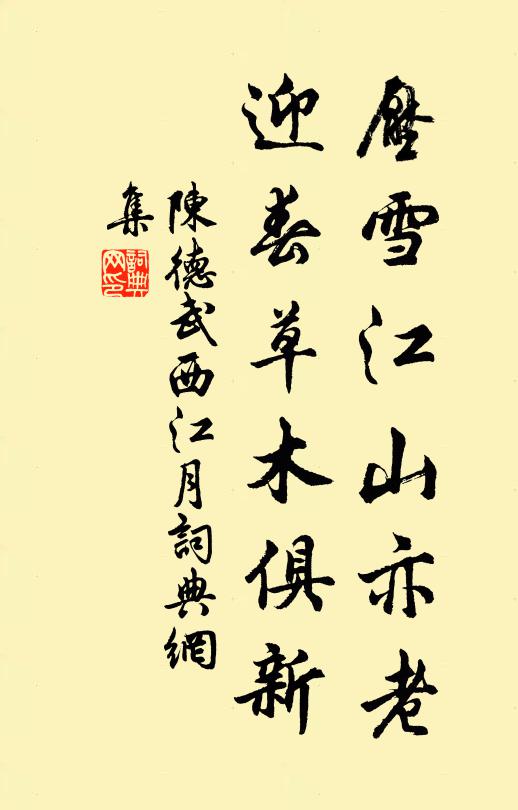 壓雪江山亦老
迎春草木俱新
陳德武西江月詞典網
集
詞典
网印